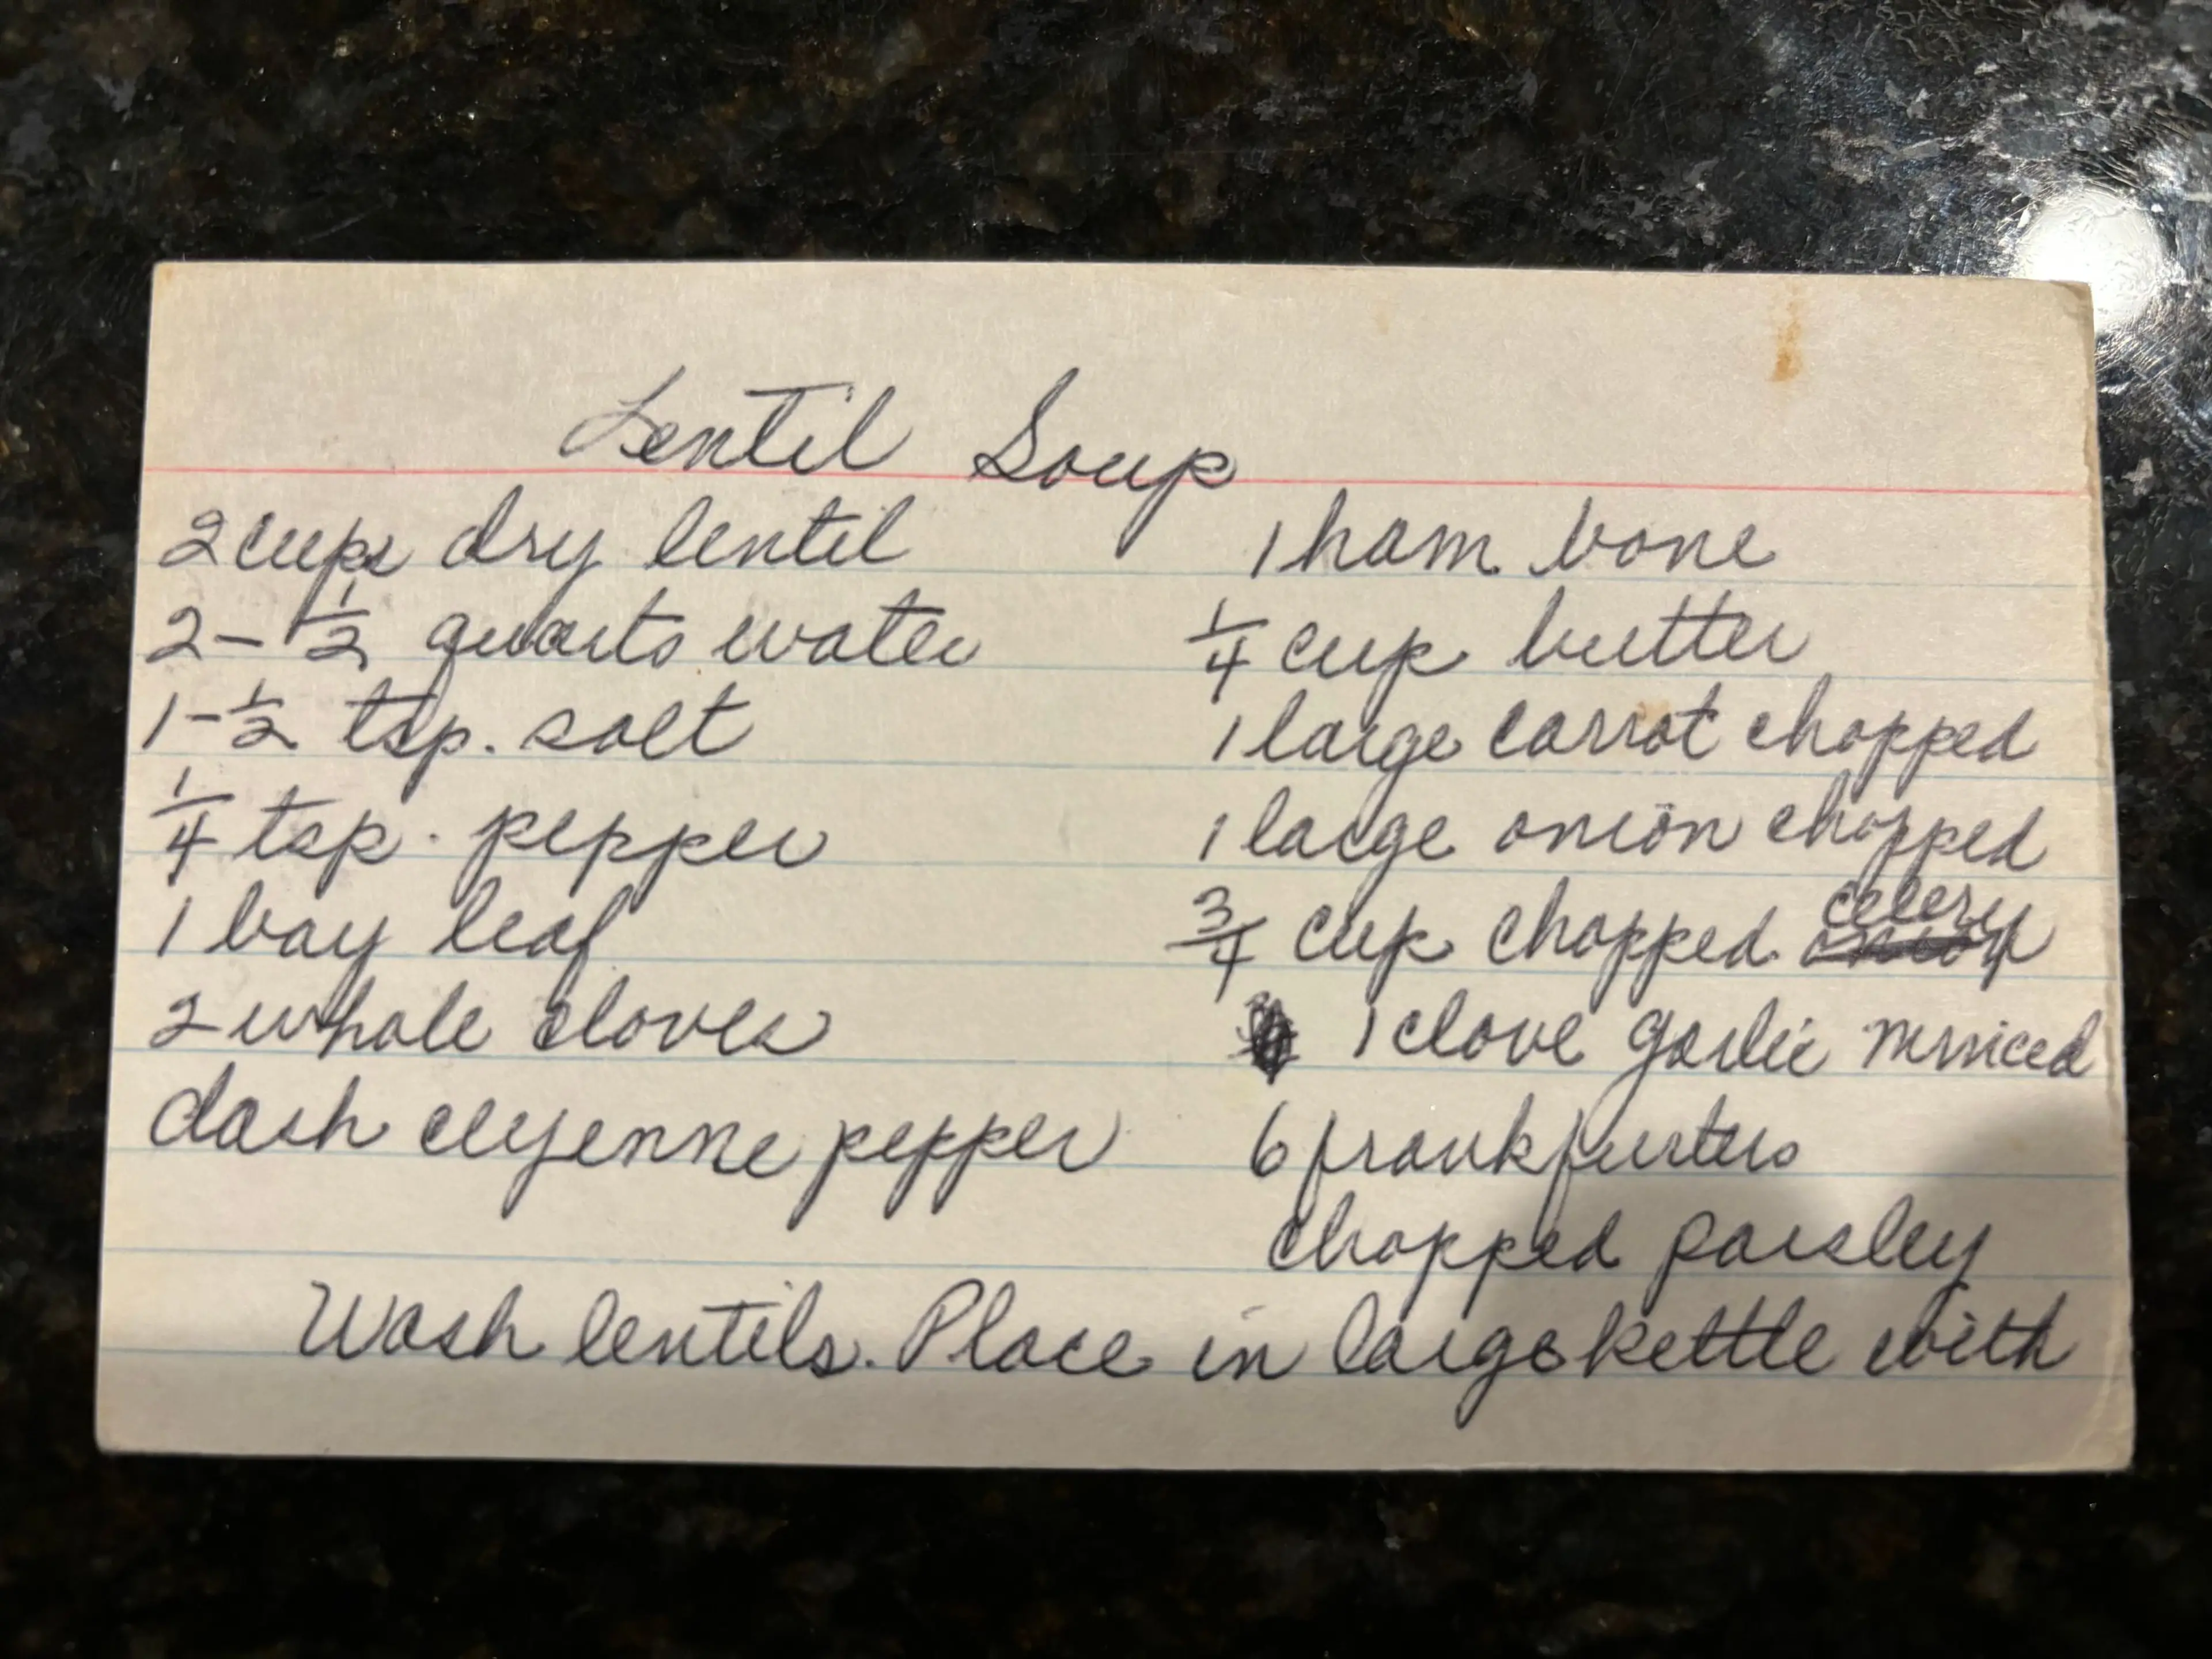 Lentil Soup
2 cups dry lentil
2-1/2 quarts water
1-1/2 tsp. salt
1/4 tsp. pepper
1 bay leaf
2 whole cloves
dash cyyenne pepper
1 ham bone
1/4 cup butter
1 large carrot chopped
1 large onion chopped
3/4 cup chopped celery
1 clove garlic minced
6 frankfurters
chopped parsley
Wash lentils. Place in large kettle with